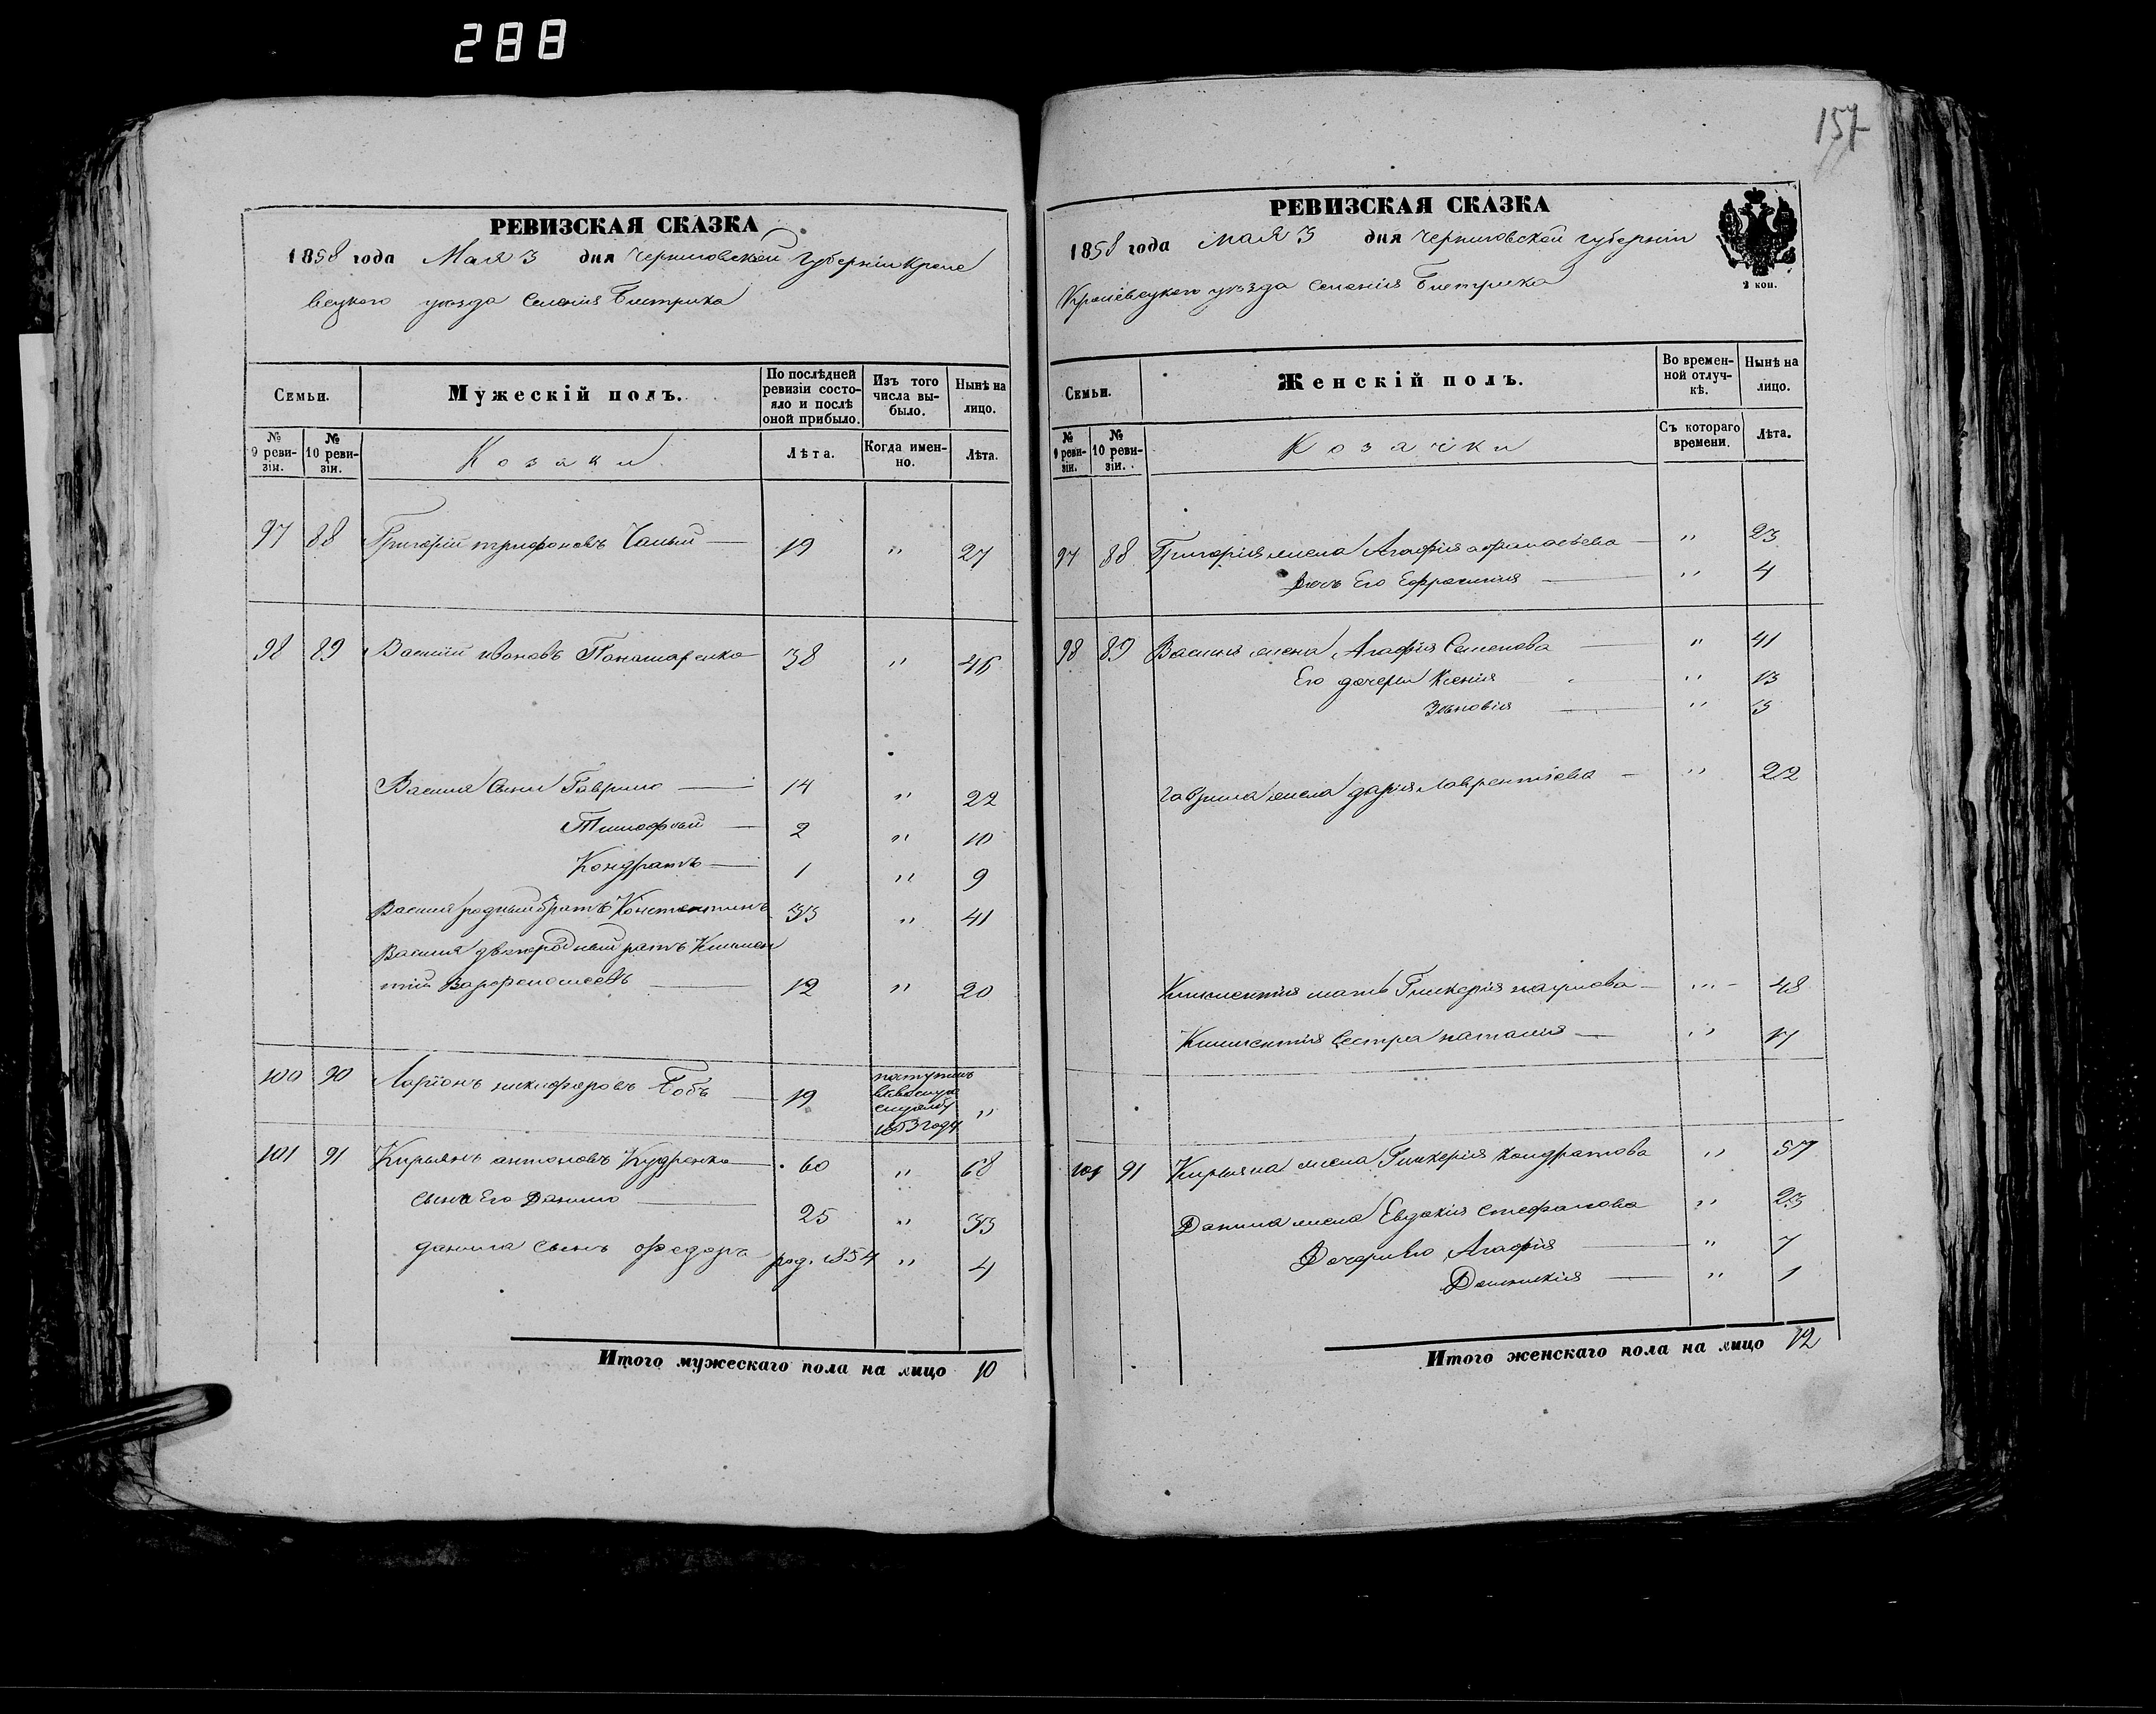 288
РЕВИЗСКАЯ СКАЗКА
1858 года Мая 3 дня Черниговской Губерніи Кроле
вецкого уезда Селенія Бистрика
Семьи.
Мужескій полъ.
По послѣдней ревизіи состояло и послѣ оной прибыло.
Изъ того числа выбыло.
Нынѣ на лицо.
№ 9 ревизіи.
№ 10 ревизіи.
Козаки
Лѣта.
Когда именно.
Лѣта.
97 88 Григорій трифоновъ 19 " 27
98 89 Василій ивановъ Панамаренко 38 " 46
Василія Сыни Гаврило — 14 " 22
Тимофѣй — 2 " 10
Кондратъ — 1 " 9
Василія родный братъ Константинъ 33 " 41
Василія двоюродный братъ Климен
тій Варфоломеевъ — 12 " 20
100 90 Ларіонъ никифоровъ Бобъ — 19 поступилъ
въ
службу "
1853 года
101 91 Кирьянъ антоновъ Кудренко — 60 " 68
Сынъ Его Данило — 25 " 33
данила Сынъ федоръ род. 1854 " 4
Итого мужескаго пола на лицо 10
157
РЕВИЗСКАЯ СКАЗКА
1858 года мая 3 дня Черниговской губерніи
Кролевецкого уезда Селенія Бистрика
2 коп.
Семьи.
Женскій полъ.
Во временной отлучкѣ.
Нынѣ на лицо.
№ 9 ревизіи.
№ 10 ревизіи.
Козачки
Съ котораго времени.
Лѣта.
97 88 Григорія жена Агафія афанасьева — " 23
Дочь Его Ефросинія — " 4
98 89 Василія жена Агафія Семенова — " 41
Его дочери Ксенія " 13
Зѣновія — " 3
гаврила жена дарія Лаврентіева — " 22
Климентія мать Гликерія наумова — " 48
Климентія Сестра наталія — " 17
101 91 Кирьяна жена Гликерія Кондратова " 57
Данила жена Евдокія Стефанова " 23
Дочери Его Агафія — " 7
Домникія — " 1
Итого женскаго пола на лицо 12